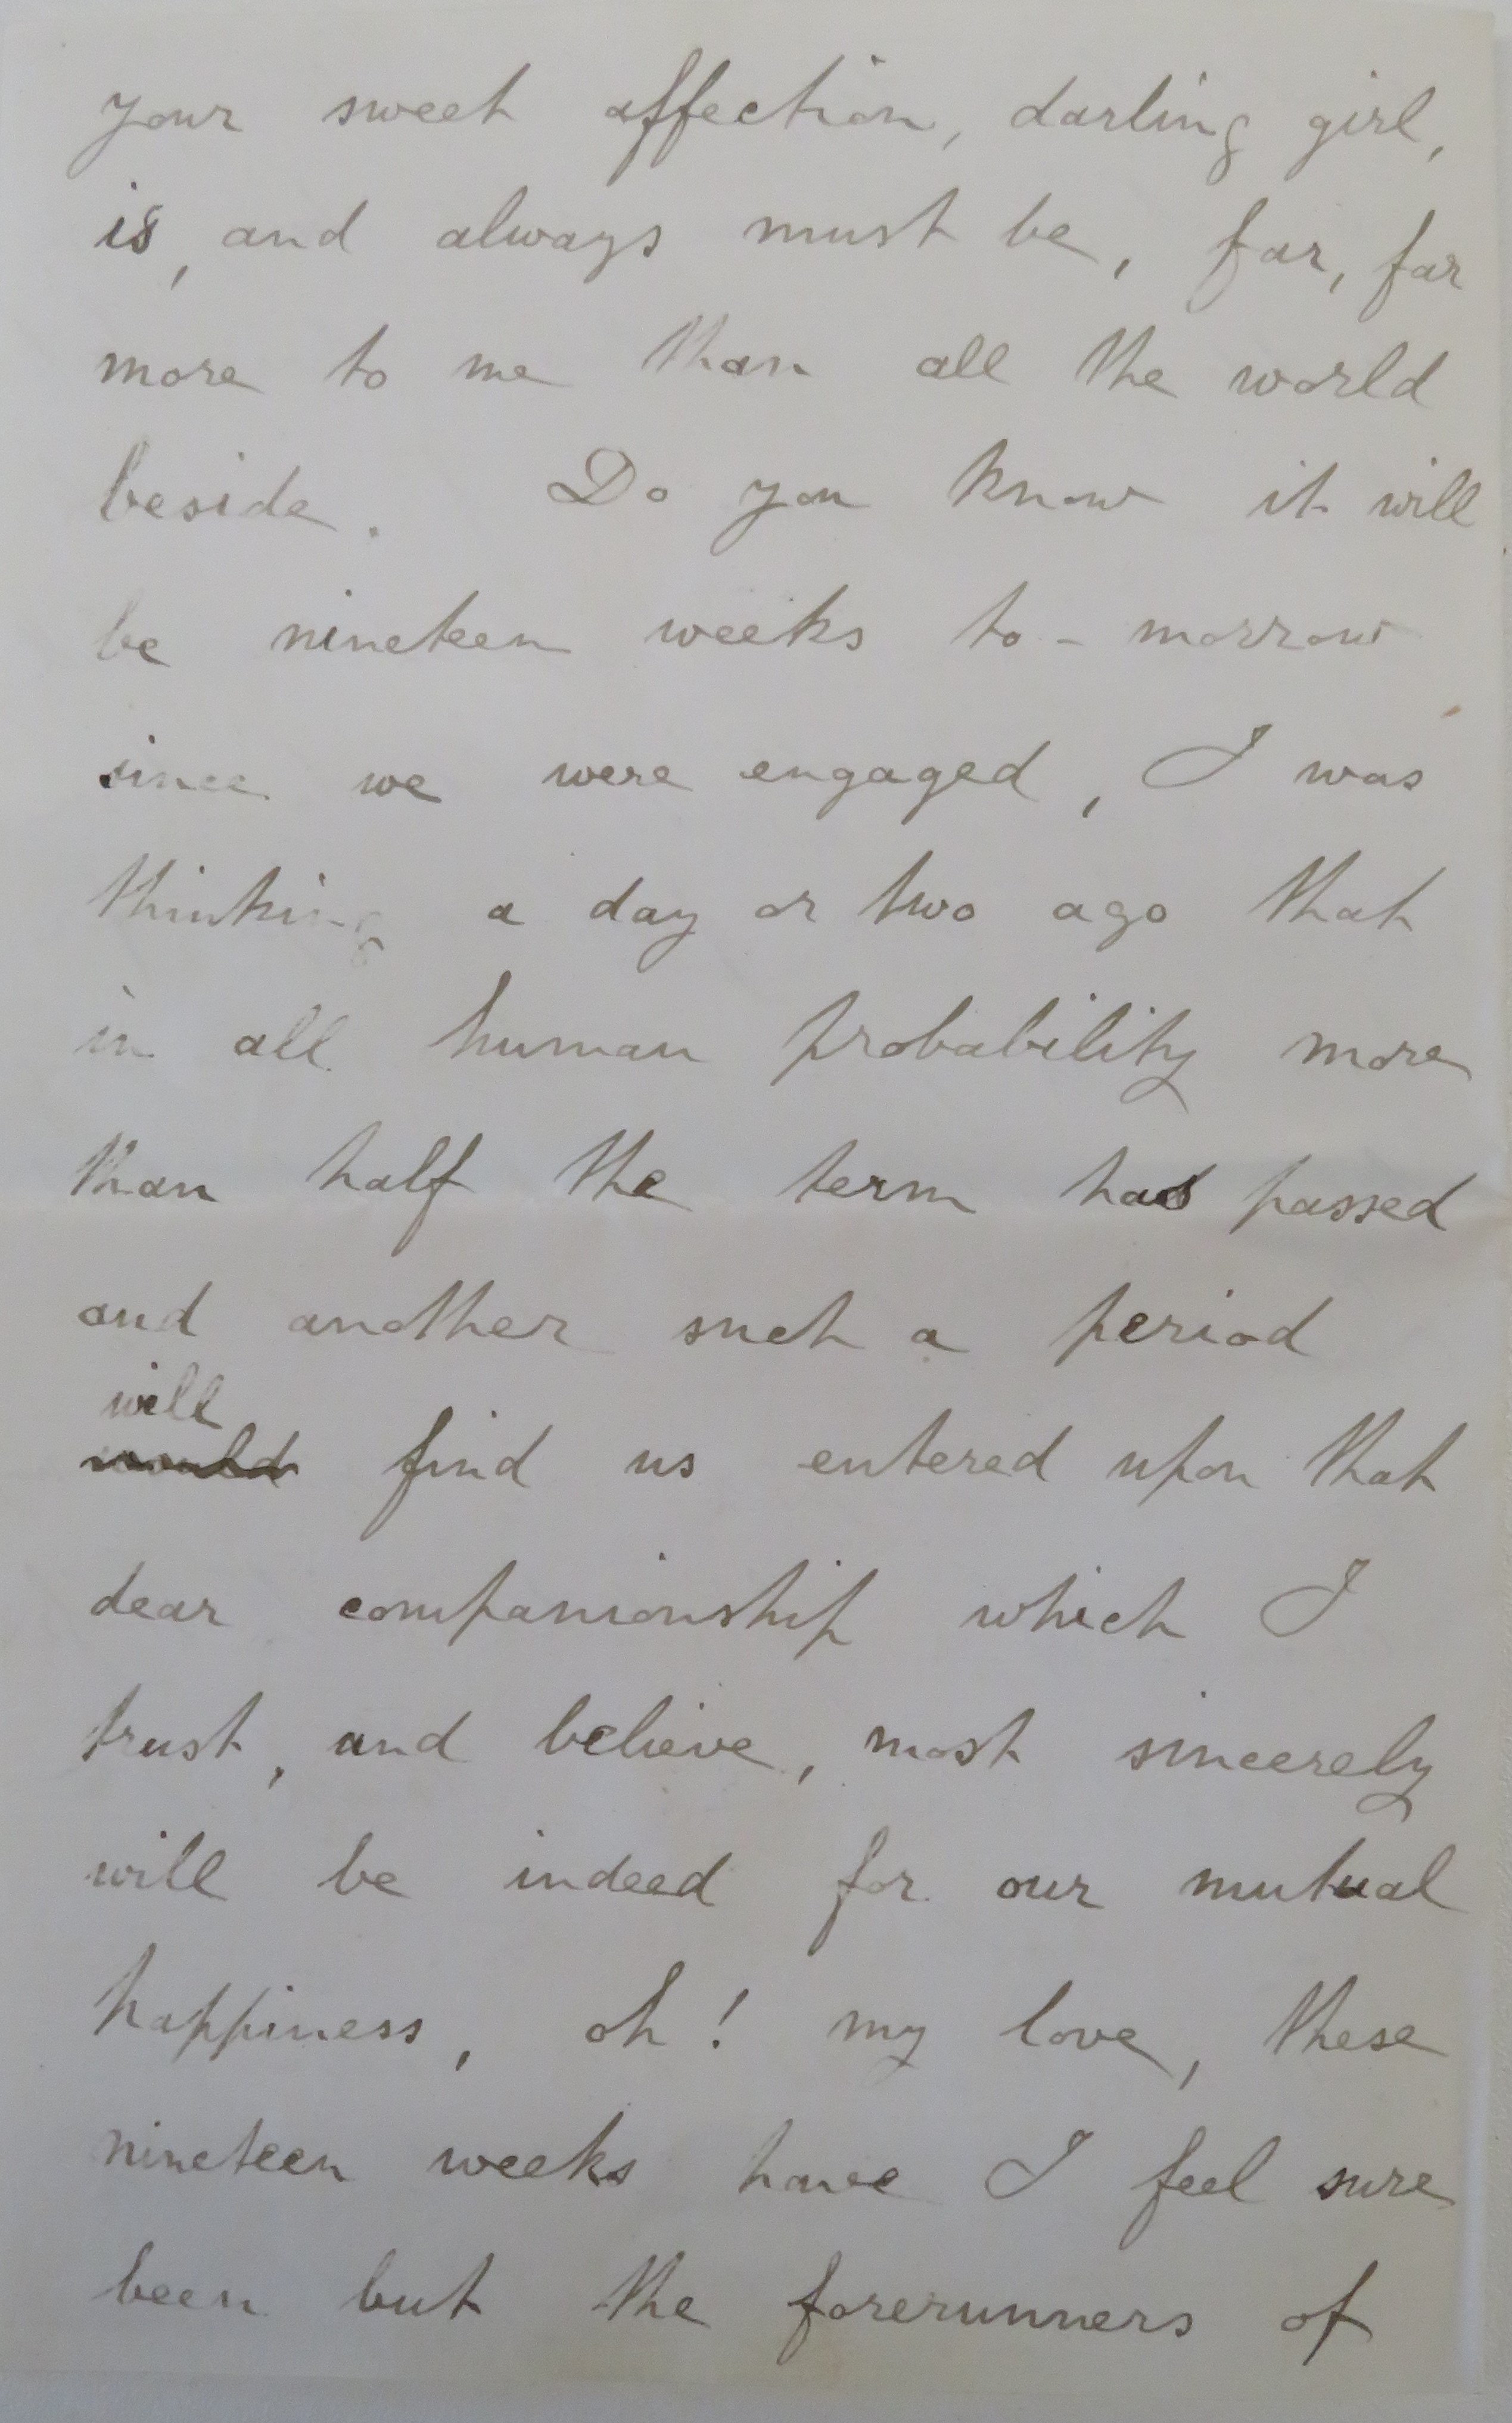 your sweet affection, darling girl,
is, and always must be, far, far
more to me than all the world
beside. Do you know it will
be nineteen weeks to-morrow
since we were engaged, I was
thinking a day or two ago that
in all human probability more
than half the term has passed
and another such a period
will
would find us entered upon that
dear companionship which I
trust, and believe, most sincerely
will be indeed for our mutual
happiness, oh! my love, these
nineteen weeks have I feel sure
been but the forerunners of